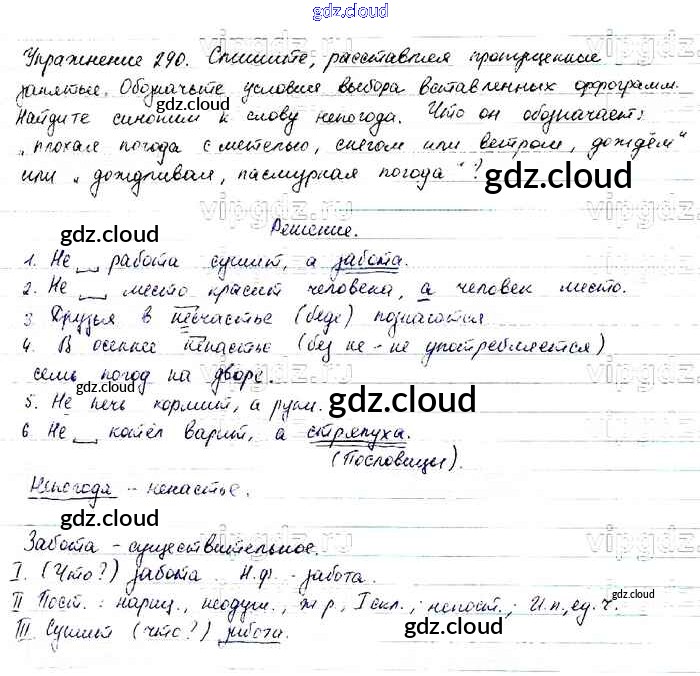 gdz.cloud
Упражнение 290. Спишите, расставляя пропущенные
gdz.cloud
запятые. Обозначьте условия выбора вставленных орфограмм.
Найдите синоним к слову непогода. Что он обозначает:
„плохая погода с метелью, снегом или ветром, дождём"
или „дождливая, пасмурная погода"?
gdz.cloud
Решение.
gdz.cloud
1. Не __ работа сушит, а забота.
2. Не __ место красит человека, а человек место.
3 Друзья в несчастье (беде) познаются.
4. В осеннее ненастье (без не - не употребляется)
семь погод на дворе.
gdz.cloud
5. Не печь кормит, а руки.
gdz.cloud
6 Не __ котёл варит, а стряпуха.
(Пословицы).
Непогода - ненастье.
gdz.cloud
Забота - существительное.
I. (Что?) забота. Н.ф. - забота.
gdz.cloud
II Пост.: нариц., неодуш., ж.р., I скл.; непост.; И.п., ед.ч.
III Сушит (что?) работа.
gdz.cloud
vipgdz.ru